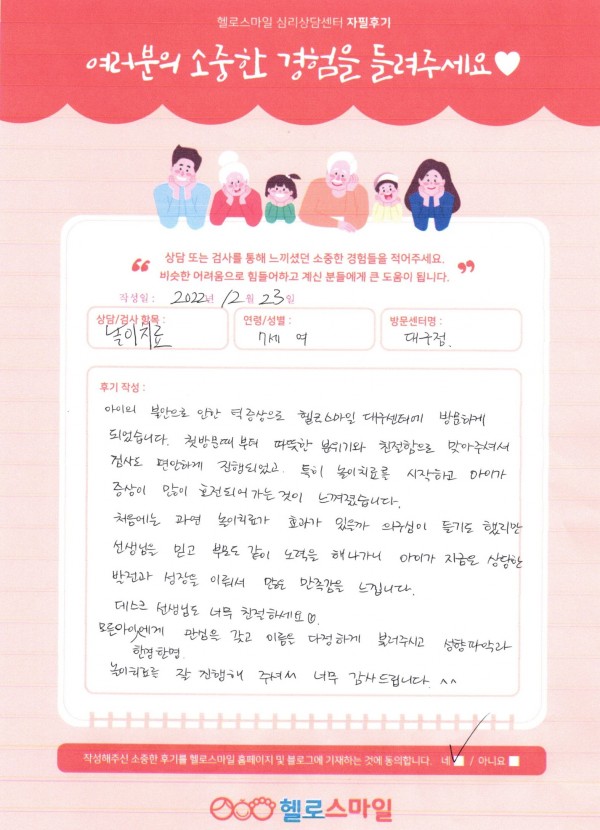 헬로스마일 심리상담센터 자필후기
여러분의 소중한 경험을 들려주세요♥
“ 상담 또는 검사를 통해 느끼셨던 소중한 경험들을 적어주세요.
비슷한 어려움으로 힘들어하고 계신 분들에게 큰 도움이 됩니다. ”
작성일 : 2022년 12월 23일
상담/검사 항목 : 놀이치료
연령/성별 : 7세 여
방문센터명 : 대구점.
후기 작성 :
아이의 불안으로 인한 틱증상으로 헬로스마일 대구센터에 방문하게
되었습니다. 첫방문때부터 따뜻한 분위기와 친절함으로 맞아주셔서
검사도 편안하게 진행되었고. 특히 놀이치료를 시작하고 아이가
증상이 많이 호전되어가는것이 느껴졌습니다.
처음에는 과연 놀이치료가 효과가 있을까 의구심이 들기도 했지만
선생님을 믿고 부모도 같이 노력을 해나가니 아이가 지금은 상당한
발전과 성장을 이뤄서 많은 만족감을 느낍니다.
데스크 선생님도 너무 친절하세요
모든아이에게 한명한명 관심을 갖고 이름을 다정하게 불러주시고 성향파악과
놀이치료를 잘 진행해 주셔서 너무 감사드립니다. ^^
작성해주신 소중한 후기를 헬로스마일 홈페이지 및 블로그에 기재하는 것에 동의합니다. 네 ✓ / 아니요
헬로스마일